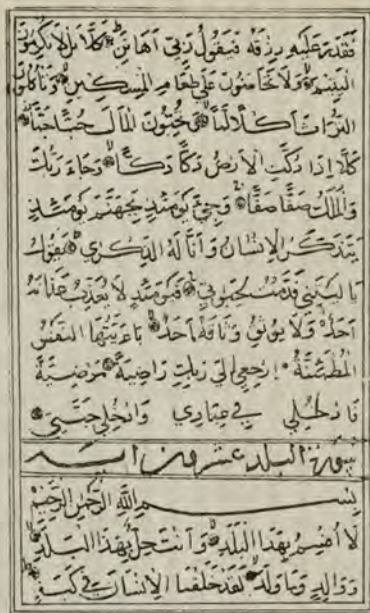 فَقَدَرَ عَلَيْهِ رِزْقَهُ فَيَقُولُ رَبِّي أَهَانَنِ كَلَّا بَل لَا تُكْرِمُونَ
الْيَتِيمَ وَلَا تَحَاضُّونَ عَلَى طَعَامِ الْمِسْكِينِ وَتَأْكُلُونَ
التُّرَاثَ أَكْلًا لَمًّا وَتُحِبُّونَ الْمَالَ حُبًّا جَمًّا
كَلَّا إِذَا دُكَّتِ الْأَرْضُ دَكًّا دَكًّا وَجَاءَ رَبُّكَ
وَالْمَلَكُ صَفًّا صَفًّا وَجِيءَ يَوْمَئِذٍ بِجَهَنَّمَ يَوْمَئِذٍ
يَتَذَكَّرُ الْإِنْسَانُ وَأَنَّى لَهُ الذِّكْرَى يَقُولُ
يَا لَيْتَنِي قَدَّمْتُ لِحَيَوتِي فَيَوْمَئِذٍ لَا يُعَذِّبُ عَذَابَهُ
أَحَدٌ وَلَا يُوثِقُ وَثَاقَهُ أَحَدٌ يَاءَيَّتُهَا النَّفْسُ
الْمُطْمَئِنَّةُ ارْجِعِي إِلَى رَبِّكِ رَاضِيَةً مَرْضِيَّةً
فَادْخُلِي فِي عِبَادِي وَادْخُلِي جَنَّتِي
سورة البلد عشرون آية
بِسْمِ اللَّهِ الرَّحْمَنِ الرَّحِيمِ
لَا أُقْسِمُ بِهَذَا الْبَلَدِ وَأَنْتَ حِلٌّ بِهَذَا الْبَلَدِ
وَوَالِدٍ وَمَا وَلَدَ لَقَدْ خَلَقْنَا الْإِنْسَانَ فِي كَبَدٍ